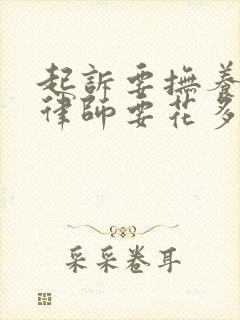 起訴要撫養
律師要花多
采采卷耳